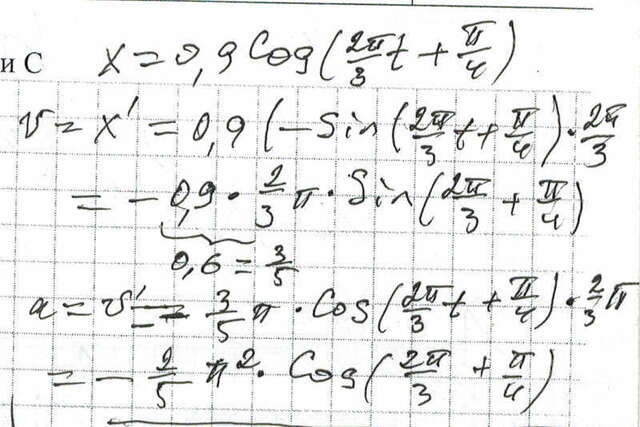 и С x = 0,9 Cos(2π/3 t + π/4)
v = x' = 0,9 (-Sin(2π/3 t + π/4) · 2π/3
= -0,9 · 2/3 π · Sin(2π/3 + π/4)
0,6 = 3/5
a = v' = - 3/5 π · Cos(2π/3 t + π/4) · 2/3 π
= - 2/5 π² · Cos(2π/3 + π/4)